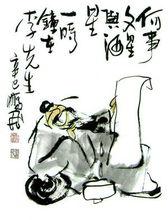 何事
文星
與酒
星
一時
鍾在
李先生
辛巳